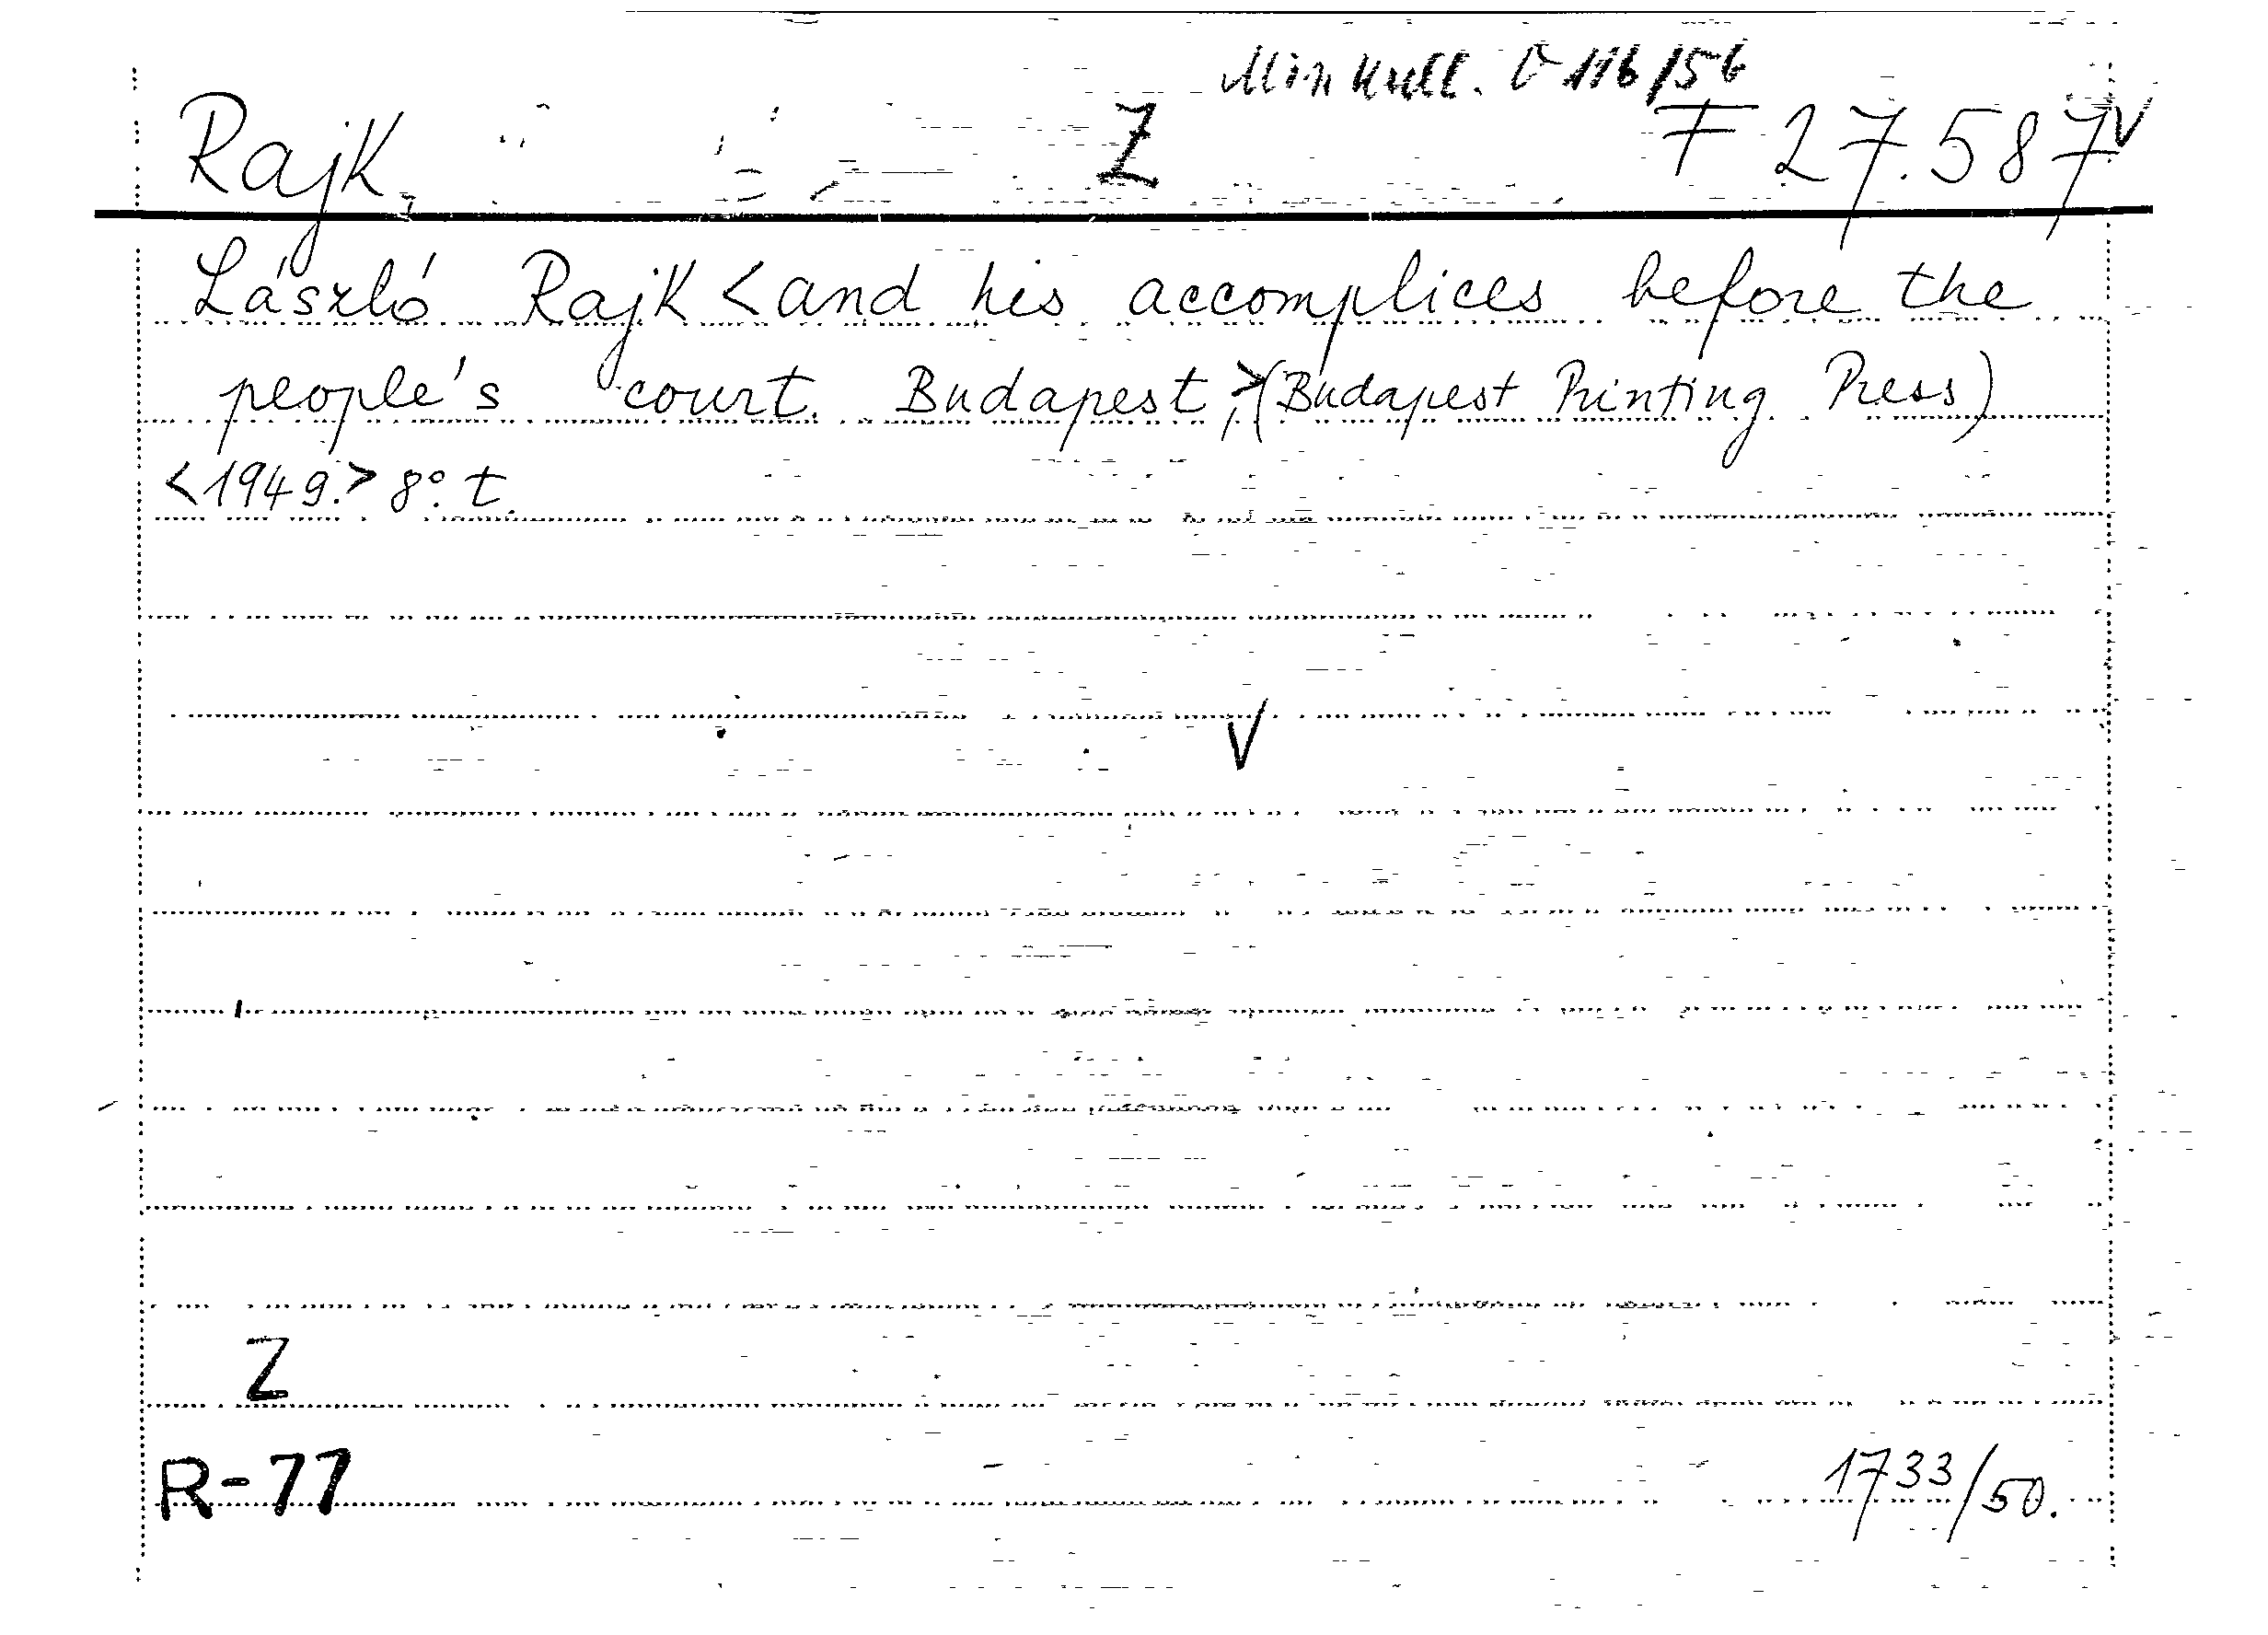 Min Kull. O 116/56
Rajk, Z F 27.587 V
László Rajk < and his accomplices before the
people's court. Budapest, > (Budapest Printing Press)
<1949.> 8° t.
V
Z
R-77
1733/50.